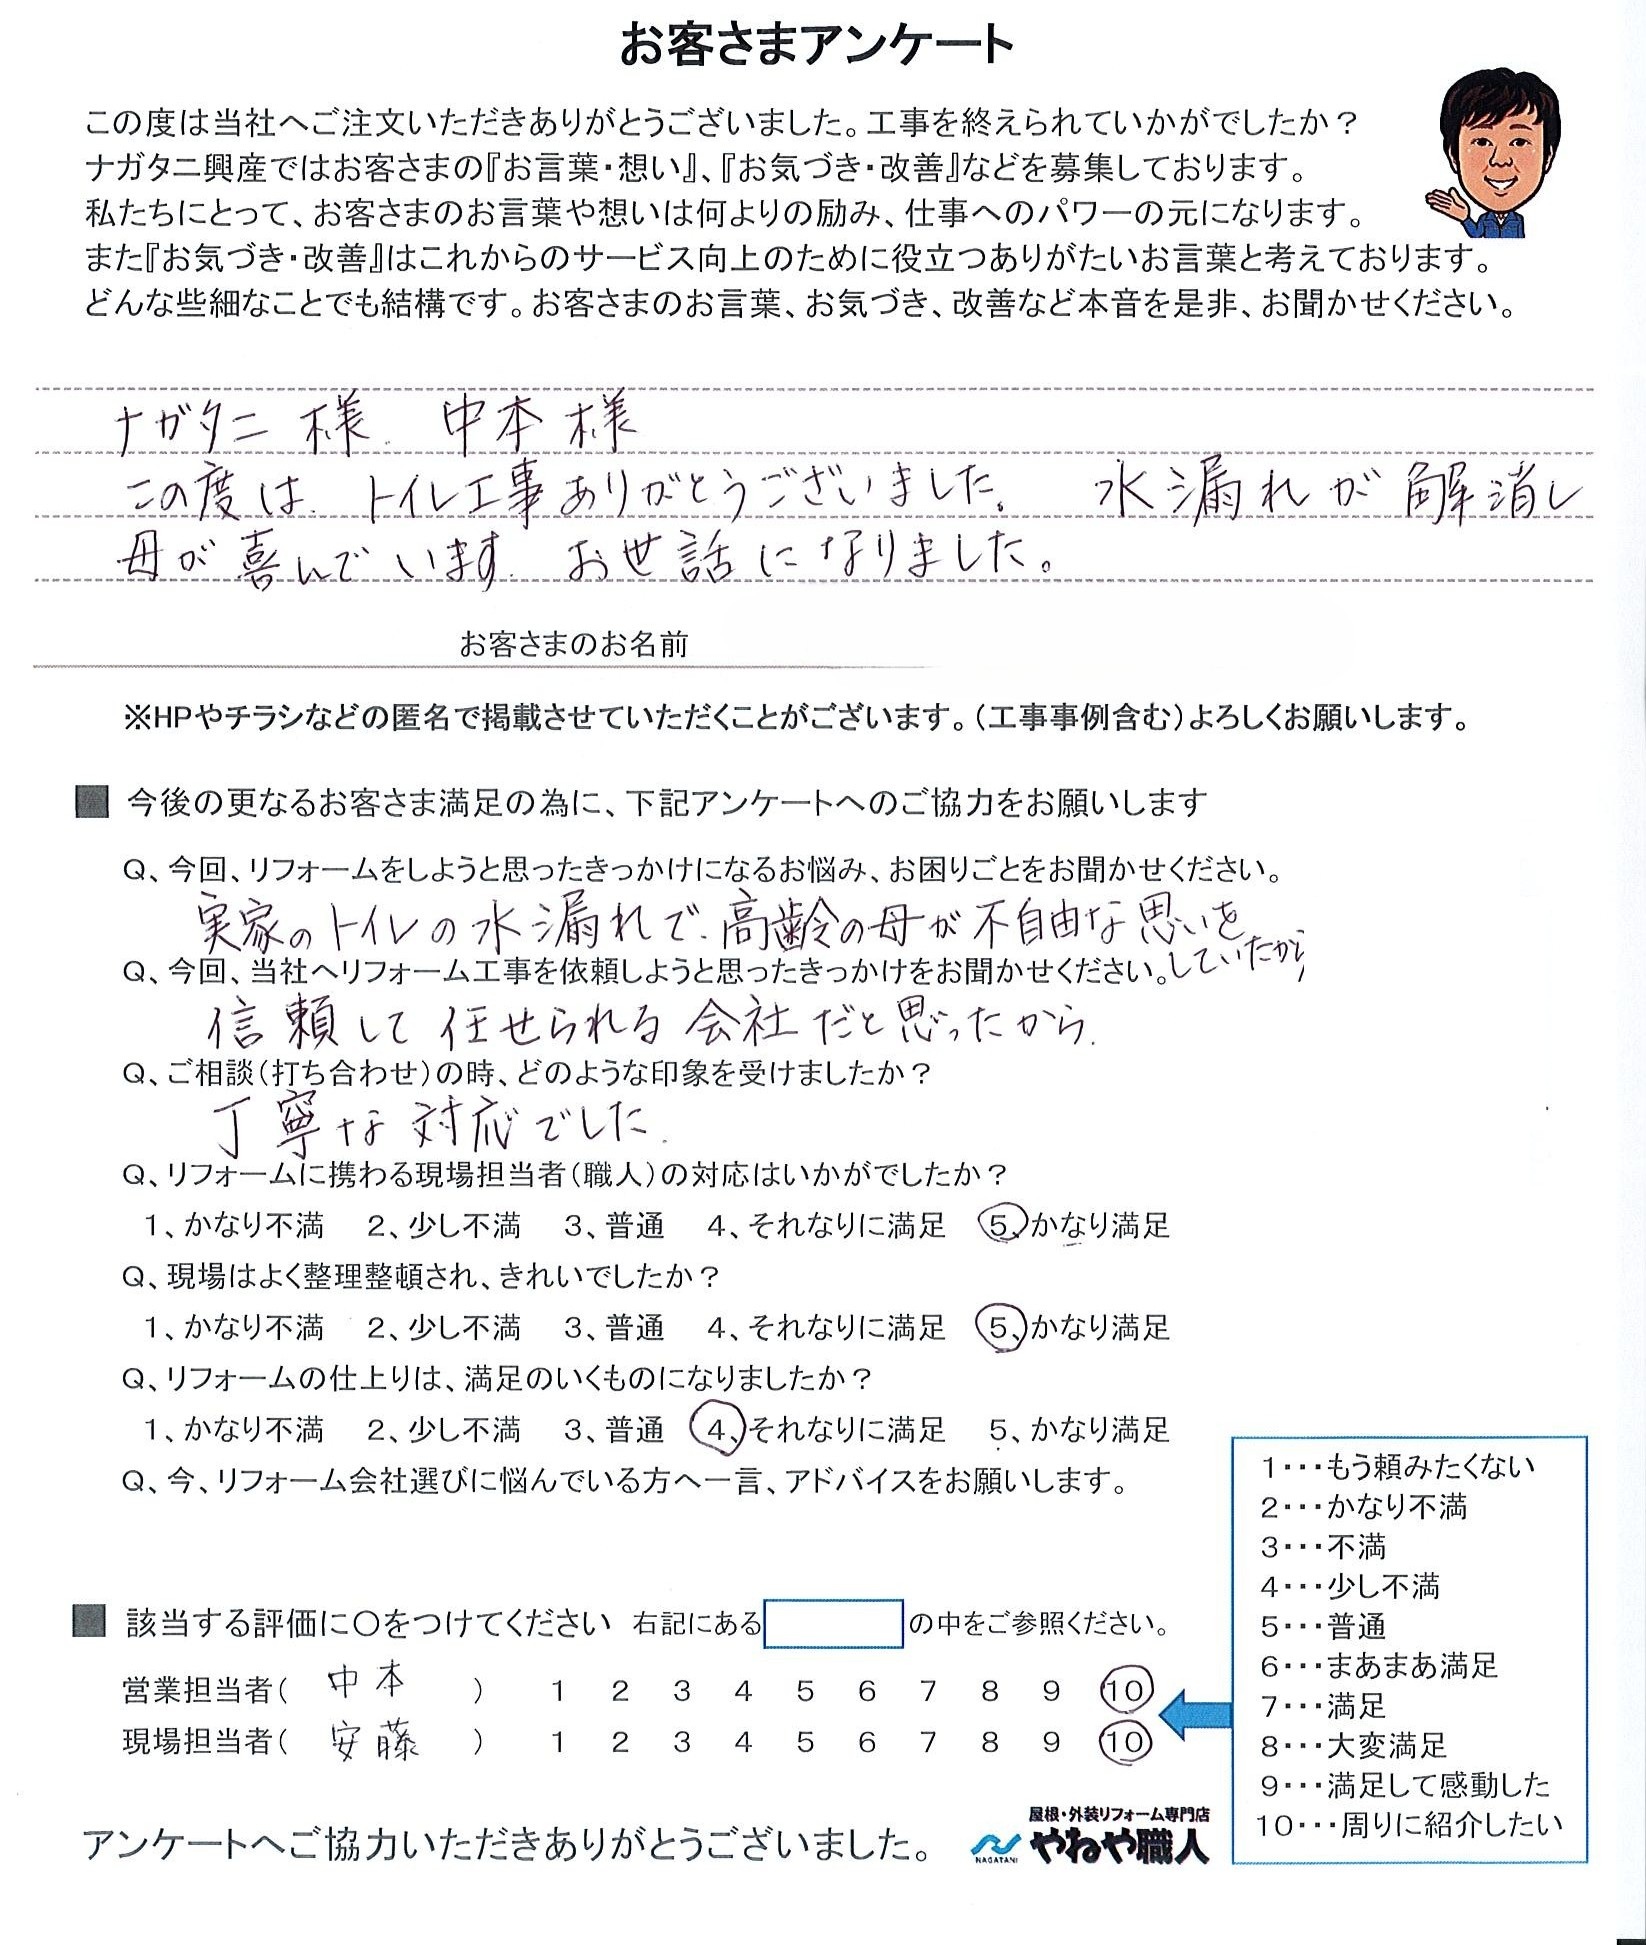 お客さまアンケート
この度は当社へご注文いただきありがとうございました。工事を終えられていかがでしたか？
ナガタニ興産ではお客さまの『お言葉・想い』、『お気づき・改善』などを募集しております。
私たちにとって、お客さまのお言葉や想いは何よりの励み、仕事へのパワーの元になります。
また『お気づき・改善』はこれからのサービス向上のために役立つありがたいお言葉と考えております。
どんな些細なことでも結構です。お客さまのお言葉、お気づき、改善など本音を是非、お聞かせください。
ナガタニ様. 中本様
この度は. トイレ工事ありがとうございました。 水漏れが解消し
母が喜んでいます. お世話になりました。
お客さまのお名前
※HPやチラシなどの匿名で掲載させていただくことがございます。（工事事例含む）よろしくお願いします。
■ 今後の更なるお客さま満足の為に、下記アンケートへのご協力をお願いします
Q、今回、リフォームをしようと思ったきっかけになるお悩み、お困りごとをお聞かせください。
実家のトイレの水漏れで、高齢の母が不自由な思いを
していたから
Q、今回、当社へリフォーム工事を依頼しようと思ったきっかけをお聞かせください。
信頼して任せられる会社だと思ったから.
Q、ご相談（打ち合わせ）の時、どのような印象を受けましたか？
丁寧な対応でした.
Q、リフォームに携わる現場担当者（職人）の対応はいかがでしたか？
1、かなり不満 2、少し不満 3、普通 4、それなりに満足 5、かなり満足
Q、現場はよく整理整頓され、きれいでしたか？
1、かなり不満 2、少し不満 3、普通 4、それなりに満足 5、かなり満足
Q、リフォームの仕上りは、満足のいくものになりましたか？
1、かなり不満 2、少し不満 3、普通 4、それなりに満足 5、かなり満足
Q、今、リフォーム会社選びに悩んでいる方へ一言、アドバイスをお願いします。
1・・・もう頼みたくない
2・・・かなり不満
3・・・不満
4・・・少し不満
5・・・普通
6・・・まあまあ満足
7・・・満足
8・・・大変満足
9・・・満足して感動した
10・・・周りに紹介したい
■ 該当する評価に〇をつけてください 右記にある の中をご参照ください。
営業担当者（ 中本 ） 1 2 3 4 5 6 7 8 9 10
現場担当者（ 安藤 ） 1 2 3 4 5 6 7 8 9 10
アンケートへご協力いただきありがとうございました。
屋根・外装リフォーム専門店
NAGATANI やねや職人